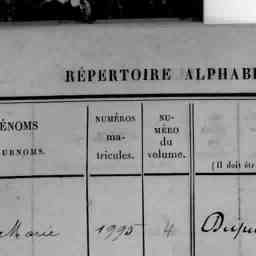 RÉPERTOIRE ALPHAB
ÉNOMS
URNOMS.
NUMÉROS
ma-
tricules.
NU-
MÉRO
du
volume.
(Il doit êt
Marie 1995 4